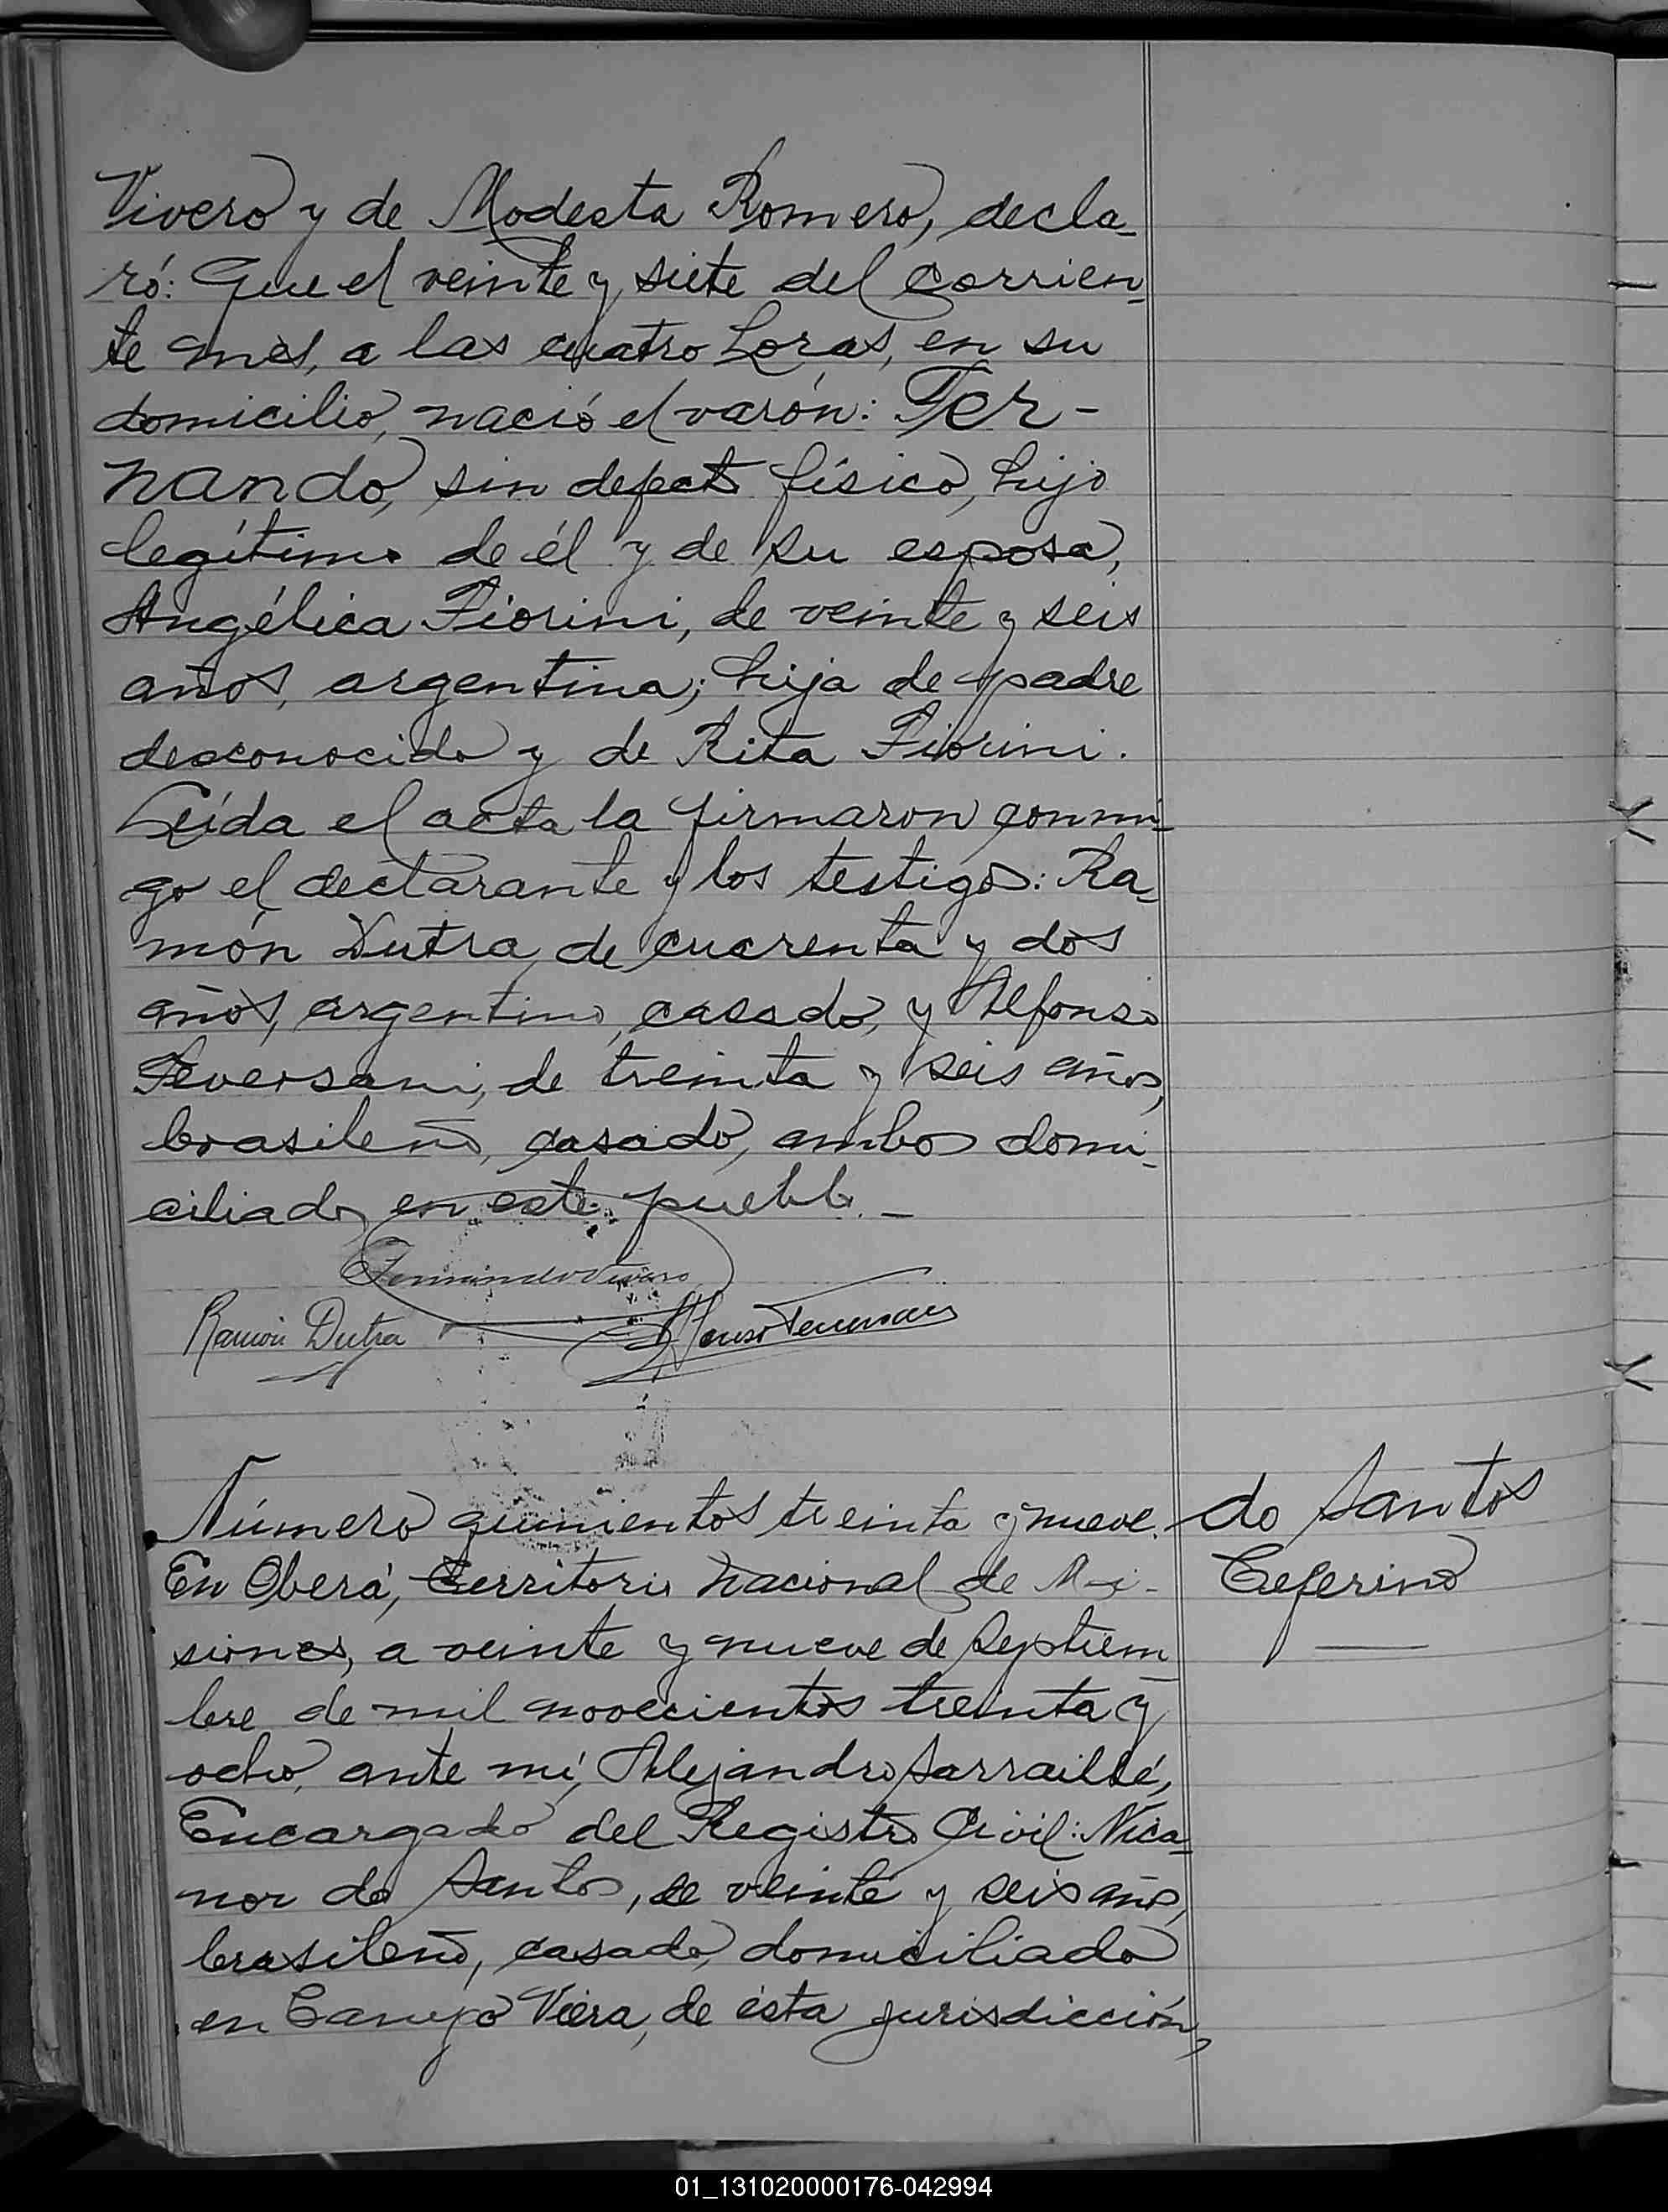 Vivero y de Modesta Romero, decla-
ró: Que el veinte y siete del corrien-
te mes, a las cuatro horas, en su
domicilio, nació el varón: Fer-
nando, sin defecto físico, hijo
legítimo de él y de su esposa,
Angélica Fiorini, de veinte y seis
años, argentina; hija de padre
desconocido y de Rita Fiorini.
Leída el acta la firmaron conmi-
go el declarante y los testigos: Ra-
món Dutra, de cuarenta y dos
años, argentino, casado, y Alfonso
Feversani, de treinta y seis años,
brasileño, casado, ambos domi-
ciliados en este pueblo. -
Fernando Vivero
Ramón Dutra Alfonso
Número quinientos treinta y nueve. do Santos
En Oberá, Territorio Nacional de Mi- Ceferino
siones, a veinte y nueve de septiem-
bre de mil novecientos treinta y
ocho, ante mí, Alejandro Sarrailhé,
Encargado del Registro Civil: Nica-
nor do Santos, de veinte y seis años,
brasileño, casado, domiciliado
en Campo Viera, de ésta jurisdicción,
01_131020000176-042994